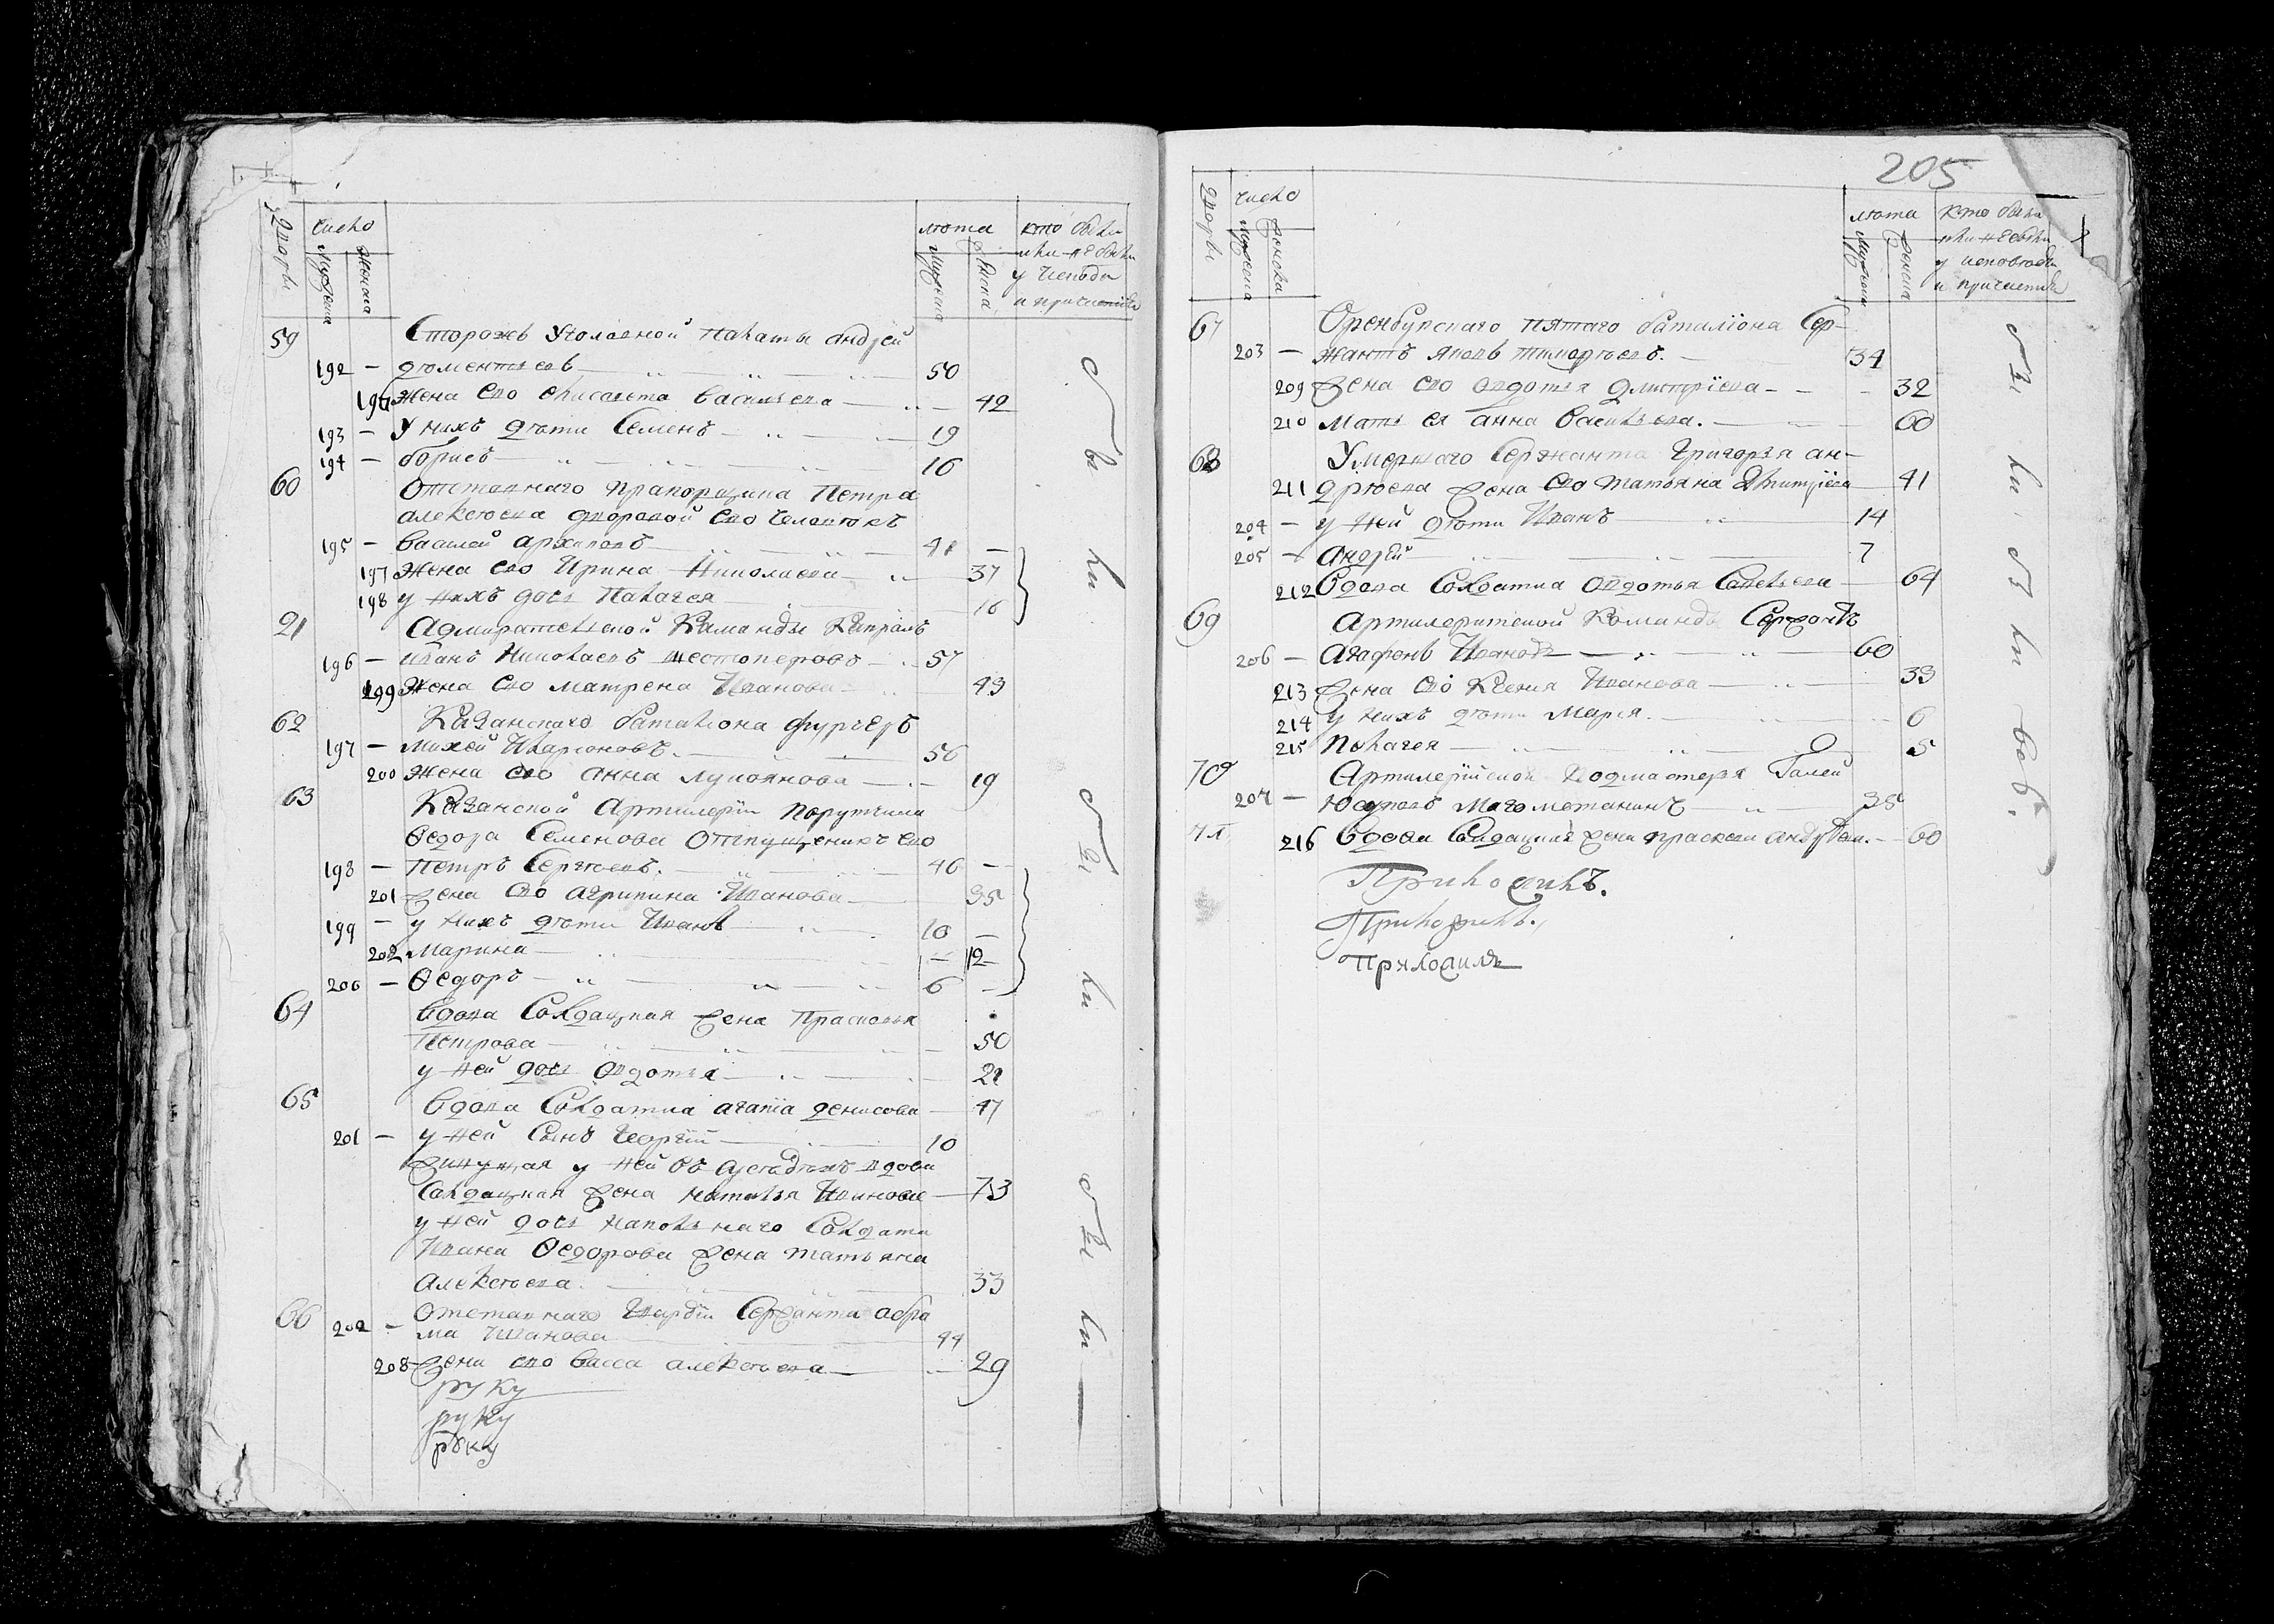 Дворы
число
мужеска
женска
лѣта
мужеска
женска
кто были
или не были
у исповѣди
и причастия
59 Сторожъ Уголовной палаты андрей
192 — дѣментьевъ 50
196 жена ево елисавета васильева 42
193 — У нихъ дѣти Семенъ 19
194 — борисъ 16
60 Отставнаго прапорщика Петра
алексѣева дворовой ево человѣкъ
195 — василей архиповъ 41 —
197 жена ево Ирина Николаева 37
198 у нихъ дочь Палагея 16
21 Адмиралтейской Команды Капралъ
196 — иванъ Николаевъ шестоперовъ 57
199 жена ево матрена Иванова 43
62 Казанского баталиона фурьеръ
197 — михей Иларионовъ 56
200 жена ево анна лукоянова 19
63 Казанской Артилерїи порутчика
Ѳедора Семенова Отпущеникъ ево
198 — петръ Сергѣевъ 46 —
201 жена ево агрипина Иванова 35
199 — у нихъ дѣти Иванъ 10 —
202 марина — 12
200 — Ѳедоръ 6 —
64 Вдова Солдацкая жена Прасковья
Петрова 50
у ней дочь Овдотья 21
65 Вдова Солдатка агапїа денисова 47
201 — у ней Сынъ Георгїй 10
Живущая у ней въ сусѣдяхъ вдова
Солдацкая жена наталья Иванова 73
у ней дочь напольнаго Солдата
Ивана Ѳедорова жена татьяна
алексѣева 33
66 отставнаго Сержанта абра
202 — ма Иванова 44
208 жена ево васса алексѣева 29
руку
руку
руку
были
были
были
205
Дворы
число
мужеска
женска
лѣта
мужеска
женска
кто были
или не были
у исповѣди
и причастия
67 Оренбурскаго пятаго баталїона Сер-
203 — жантъ яковъ тимофѣевъ 34
209 жена ево овдотья дмитрїева 32
210 мать ея анна васильева 60
68 Умершаго Сержанта Григорья ан-
211 дрѣева жена ево татьяна дмитрїева 41
204 — у ней дѣти Иванъ 14
205 — Андрей 7
212 Вдова Солдатка овдотья Савельева 64
69 Артилеритской Команды Сержантъ
206 — Агафонъ Ивановъ 60
213 жена ево Ксения Иванова 33
214 у нихъ дѣти Марья 6
215 полагея 5
70 Артилерїйской подмастерья Галей
207 — Юсуповъ магометанинъ 38
71 216 Вдова Солдацкая жена прасковья 60
Приложилъ.
Приложилъ.
Приложилъ
были были всѣ